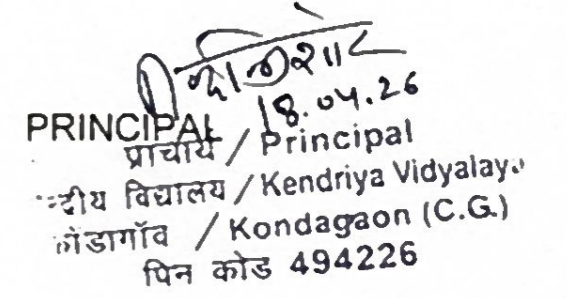 18.04.26
PRINCIPAL
प्राचार्य / Principal
विद्यालय / Kendriya Vidyalaya
/ Kondagaon (C.G.)
पिन कोड 494226